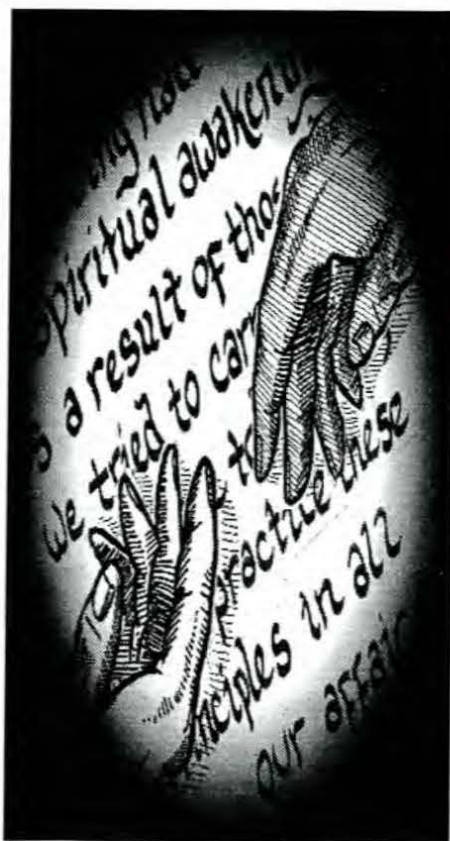 ing had
spiritual awakenin
s a result of thos
we tried to carr
to
practice these
nciples in all
our affair